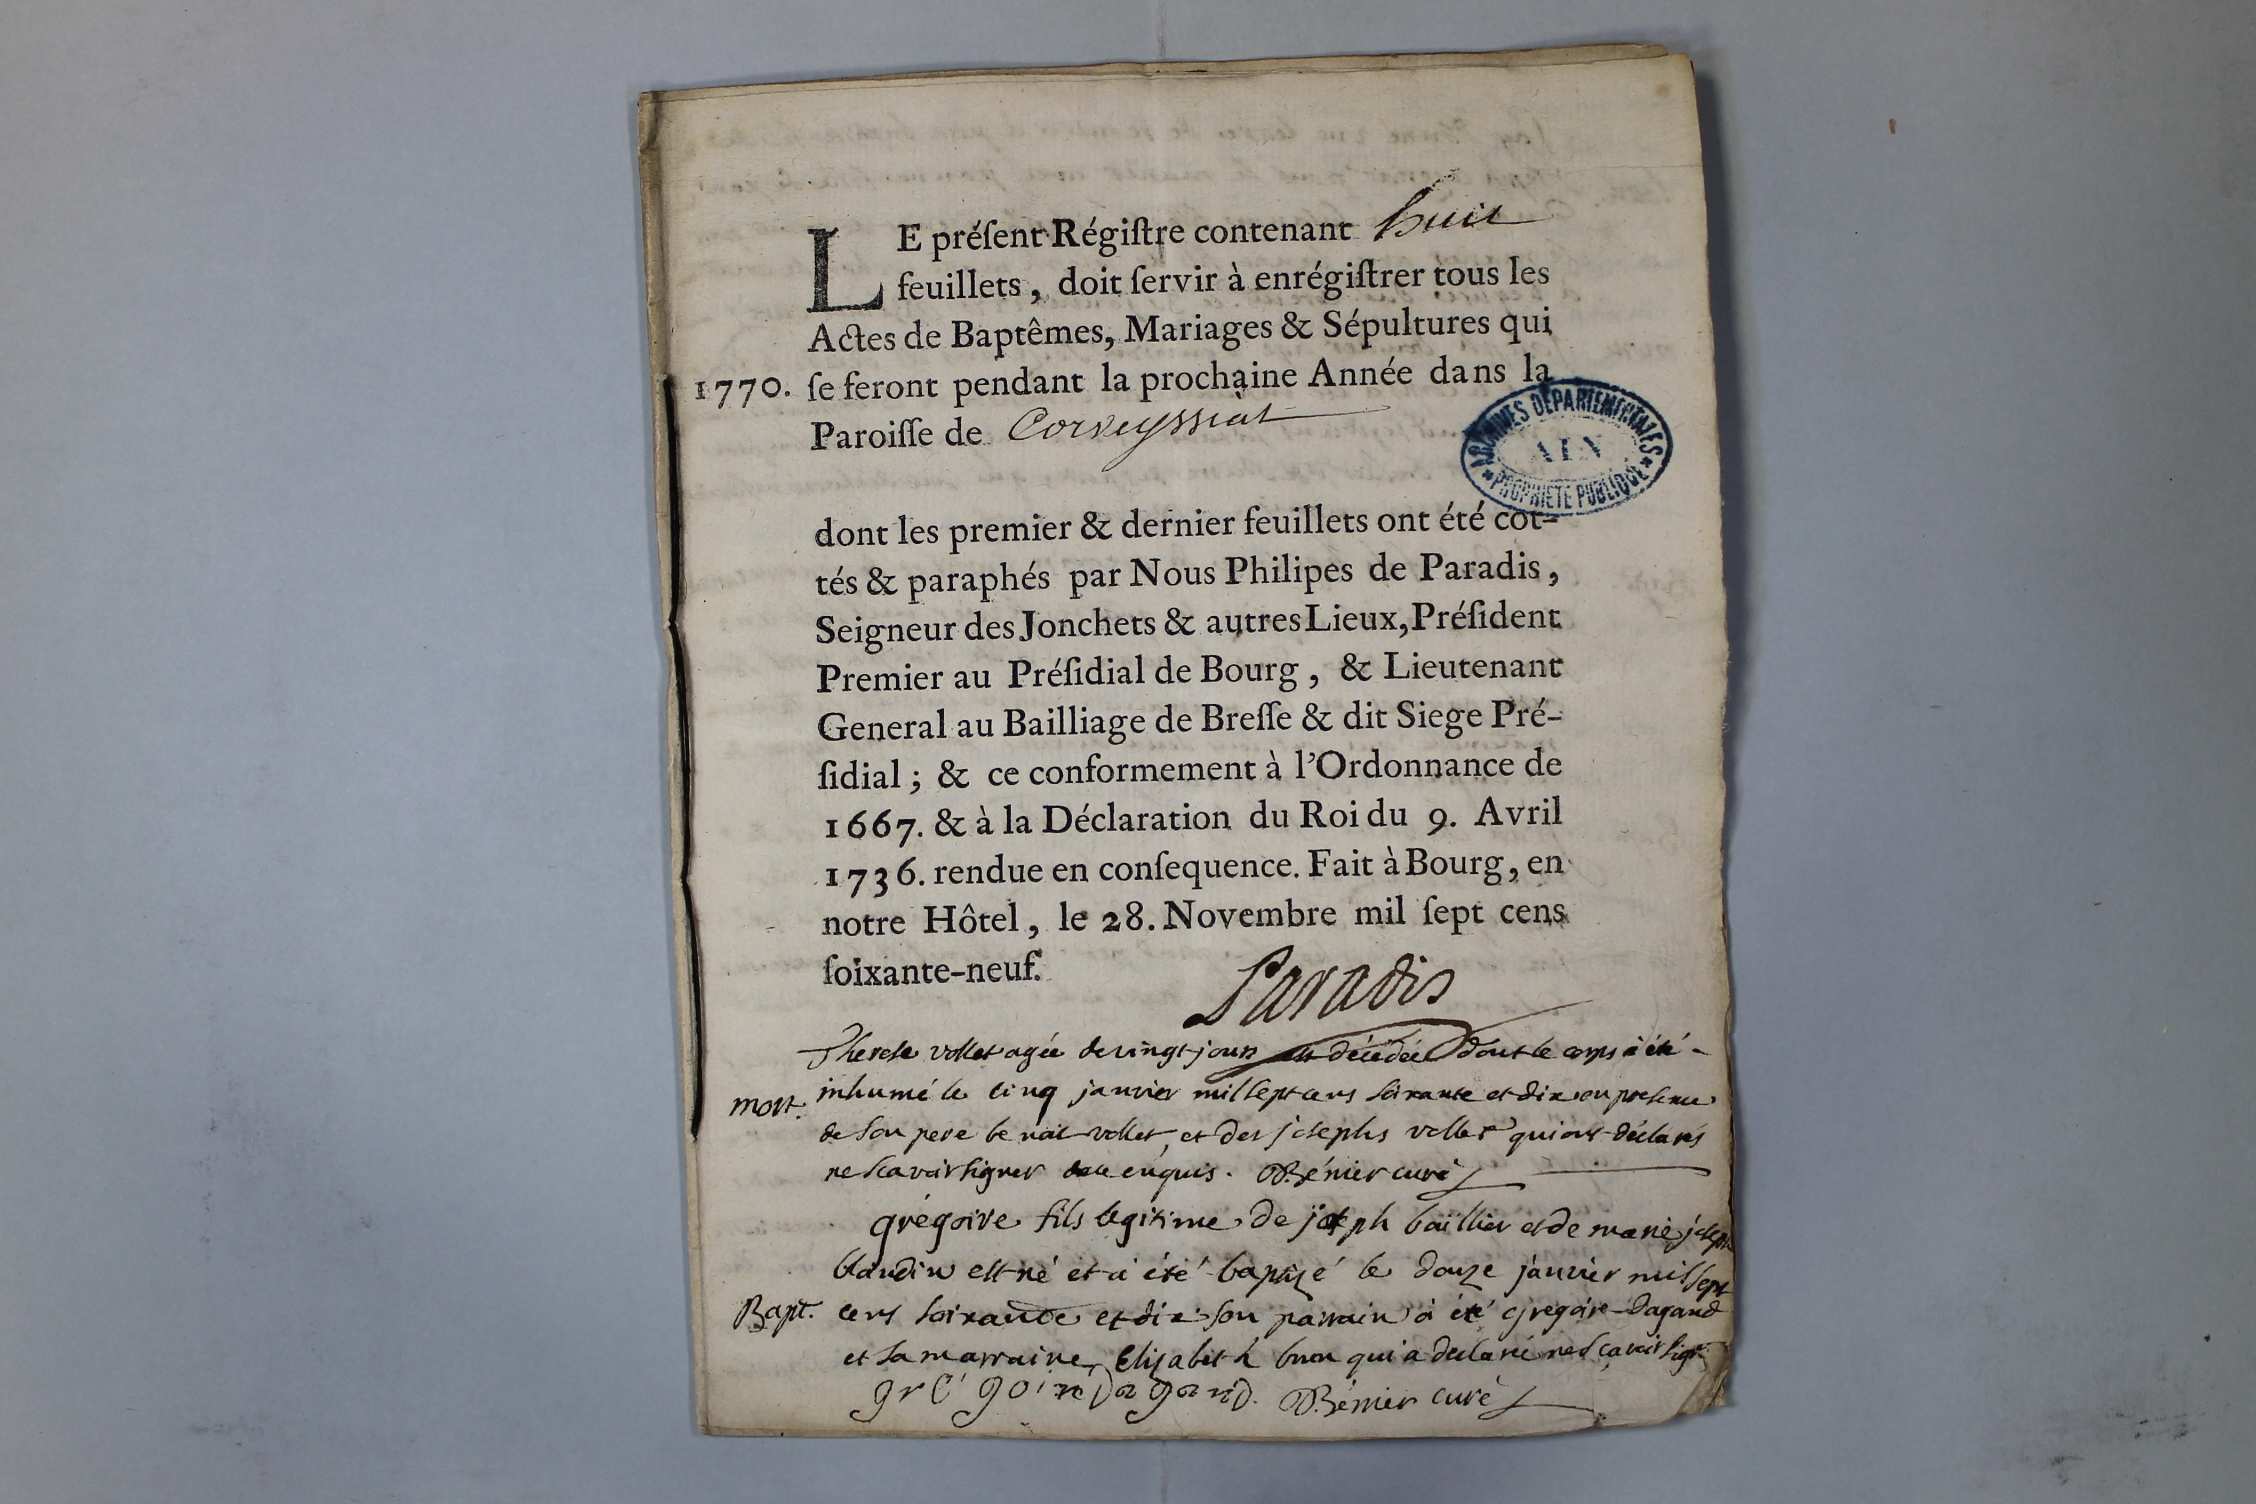 LE préſent Régiſtre contenant huit
feuillets, doit ſervir à enrégiſtrer tous les
Actes de Baptêmes, Mariages & Sépultures qui
1770. ſe feront pendant la prochaine Année dans la
Paroiſſe de Corveyssiat
ARCHIVES DÉPARTEMENTALES
AIN
* PROPRIÉTÉ PUBLIQUE *
dont les premier & dernier feuillets ont été cot-
tés & paraphés par Nous Philipes de Paradis,
Seigneur des Jonchets & autres Lieux, Préſident
Premier au Préſidial de Bourg, & Lieutenant
General au Bailliage de Breſſe & dit Siege Pré-
ſidial; & ce conformement à l'Ordonnance de
1667. & à la Déclaration du Roi du 9. Avril
1736. rendue en conſequence. Fait à Bourg, en
notre Hôtel, le 28. Novembre mil ſept cens
ſoixante-neuf.
Paradis
Therese vollet agée de vingt jours est décédée dont le corps à été
mort. inhumé le cinq janvier mil sept cens soixante et dix en presence
de son pere benoit vollet et des josephs vollet qui ont déclarés
ne scavoir signer de ce enquis. Bénier curé
grégoire fils legitime de joseph baillier et de marie joseph
blandin est né et à été baptizé le douze janvier mil sept
Bapt. cens soixante et dix son parrain à été gregoire dagand
et sa marraine Elizabeth qui a declaré ne sçavoir sign.
grégoire Dagand. Bénier curé